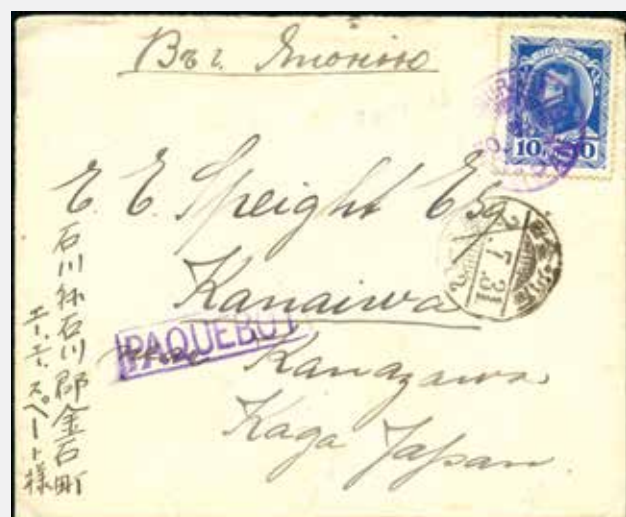 Въ г. Японію
10
E. E. Speight Esq
Kanaiwa
PAQUEBOT
near Kanazawa
Kaga Japan.
2.7.31
石川県石川郡金石町
エー、エ、スペート様